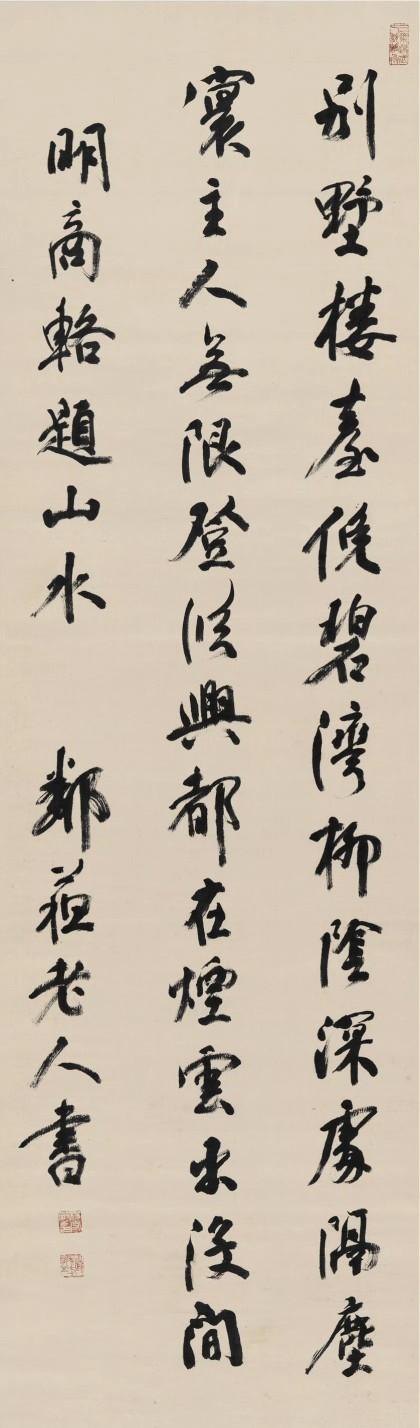 別墅樓臺俛碧灣柳陰深處隔塵
寰主人無限登臨興都在煙雲出沒間
明商輅題山水 鄰蘇老人書